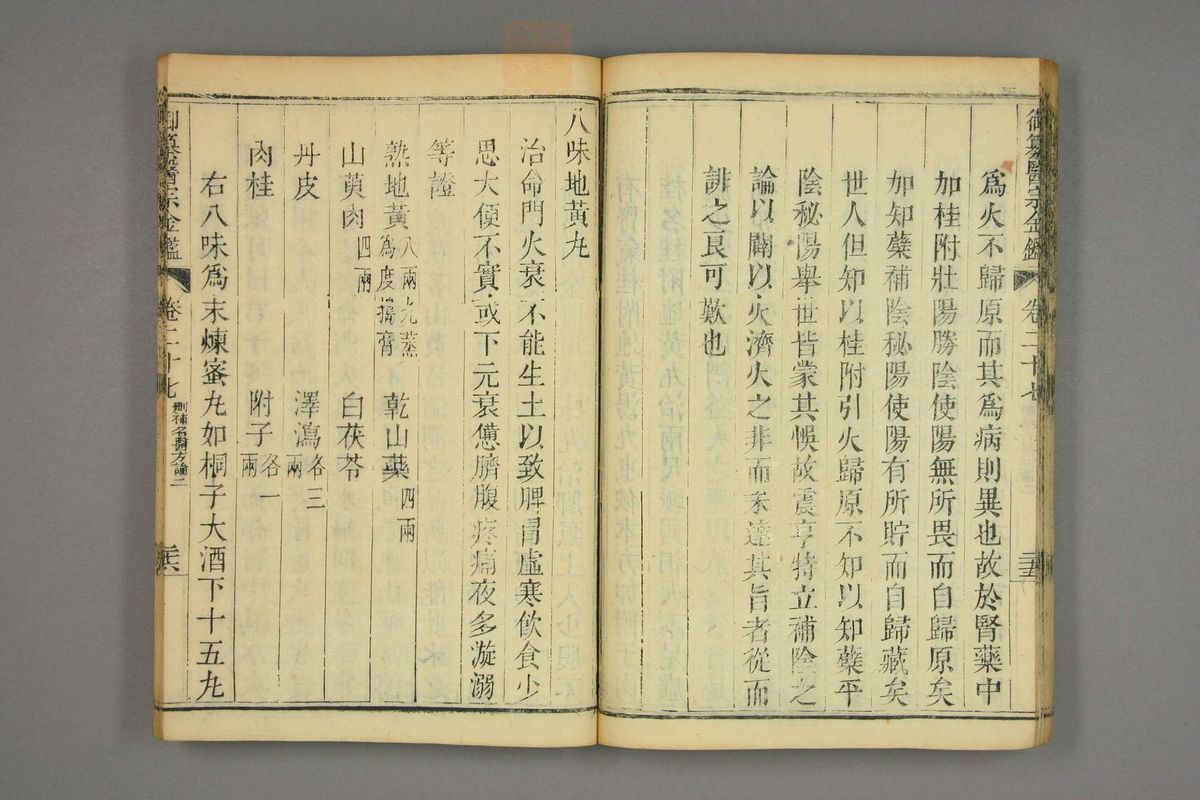 御纂醫宗金鑑 卷二十七
為火不歸原而其為病則異也故於腎藥中
加桂附壯陽勝陰使陽無所畏而自歸原矣
加知蘗補陰秘陽使陽有所貯而自歸藏矣
世人但知以桂附引火歸原不知以知蘗平
陰秘陽舉世皆蒙其悞故震亨特立補陰之
論以闢以火濟火之非而未達其旨者從而
誹之良可歎也
八味地黃丸
治命門火衰不能生土以致脾胃虛寒飲食少
思大便不實或下元衰憊臍腹疼痛夜多漩溺
等證
熟地黃 八兩九蒸為度搗膏 乾山藥 四兩
山萸肉 四兩 白茯苓
丹皮 澤瀉 各三兩
肉桂 附子 各一兩
右八味為末煉蜜丸如桐子大酒下十五丸
御纂醫宗金鑑 卷二十七 刪補名醫方論二